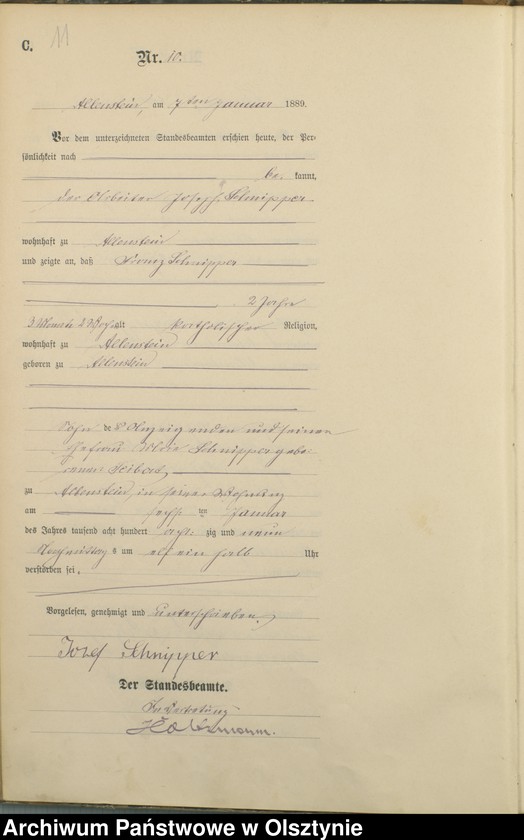 C.
11
Nr. 10.
Allenstein, am 7ten Januar 1889.
Vor dem unterzeichneten Standesbeamten erschien heute, der Per-
sönlichkeit nach
be kannt,
der Arbeiter Joseph Schnipper
wohnhaft zu Allenstein
und zeigte an, daß Franz Schnipper
2 Jahre
3 Monate alt katholischer Religion,
wohnhaft zu Allenstein
geboren zu Allenstein
Sohn des Anzeigenden und seiner
Ehefrau Schnipper gebo-
renen Seibert,
zu Allenstein, in seiner Wohnung
am sechsten Januar
des Jahres tausend acht hundert achtzig und neun
Nachmittags um elf ein halb Uhr
verstorben sei.
Vorgelesen, genehmigt und unterschrieben.
Josef Schnipper
Der Standesbeamte.
In Vertretung
Archiwum Państwowe w Olsztynie